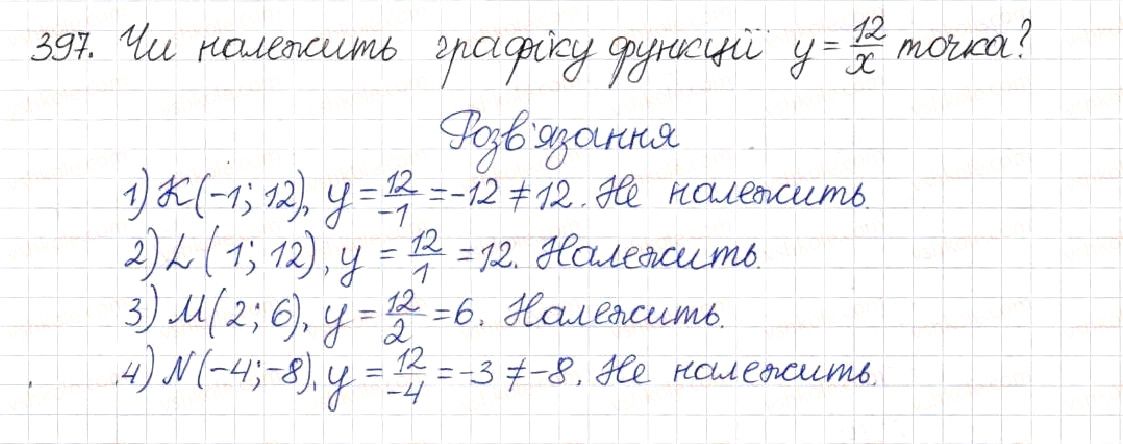 397. Чи належить графіку функції y = 12/x точка?
Розв'язання
1) K(-1; 12), y = 12/-1 = -12 ≠ 12. Не належить.
2) L(1; 12), y = 12/1 = 12. Належить.
3) M(2; 6), y = 12/2 = 6. Належить.
4) N(-4; -8), y = 12/-4 = -3 ≠ -8. Не належить.